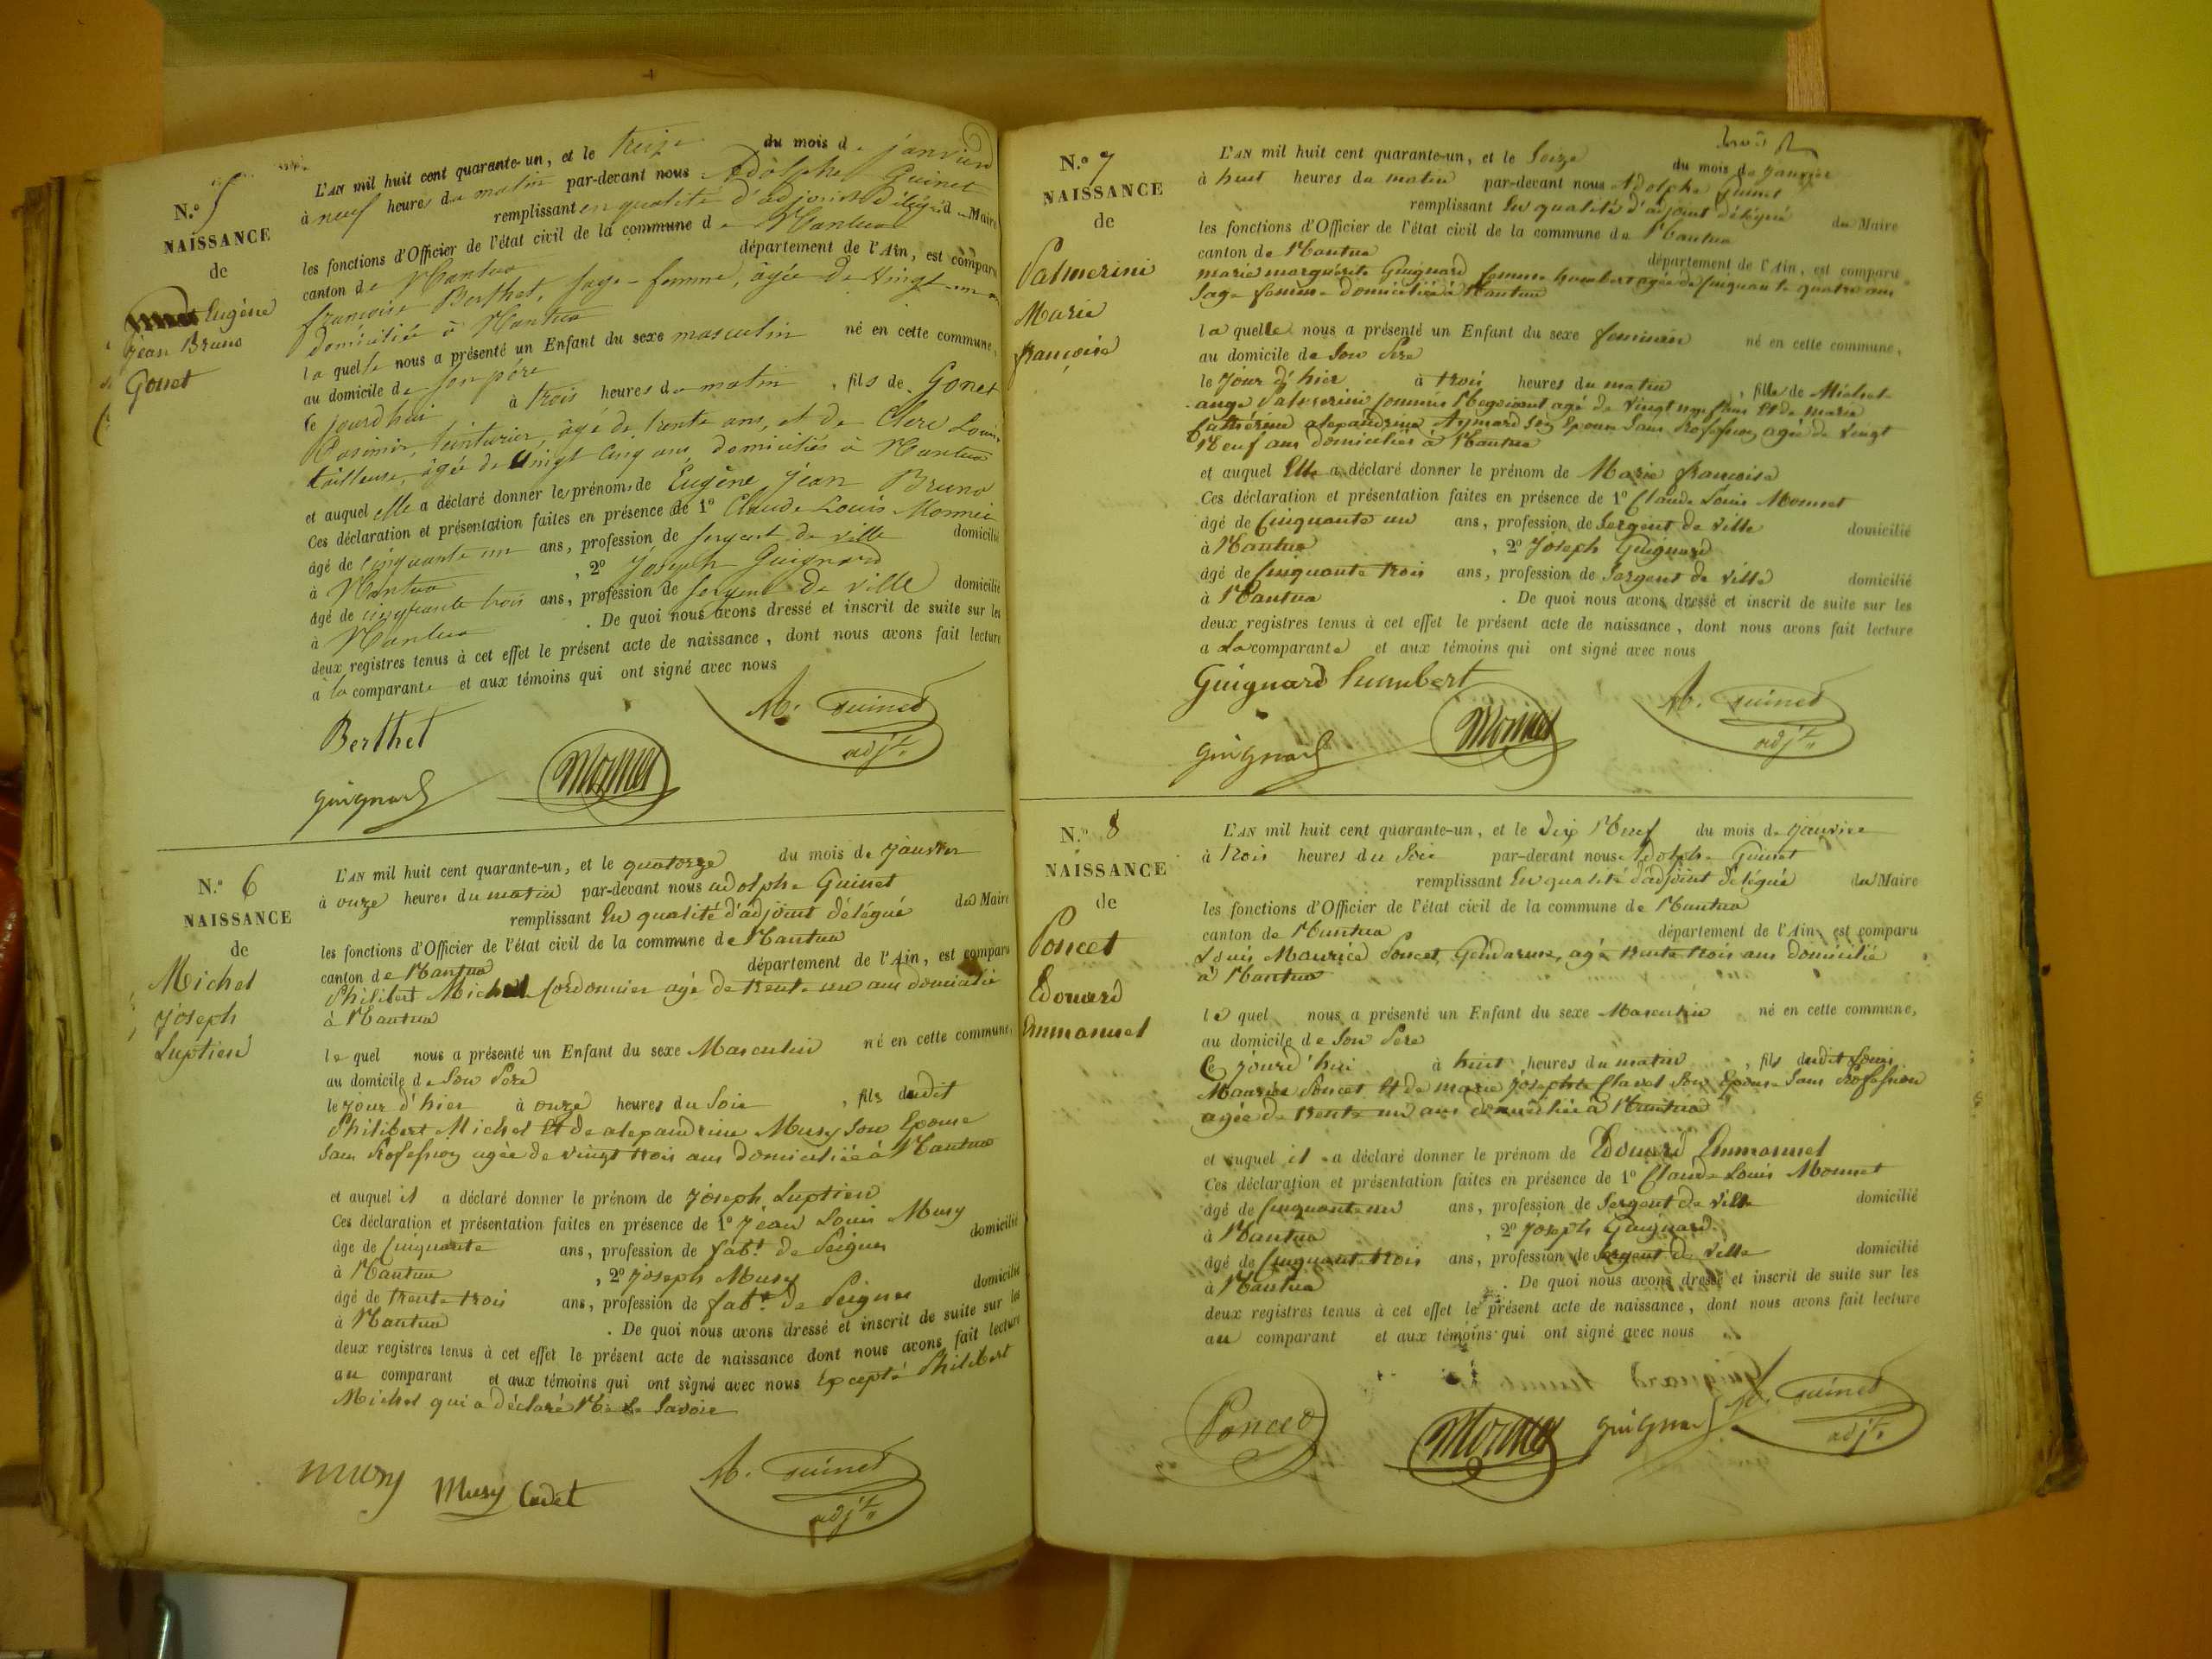 N.° 5
NAISSANCE
de
Eugène
Jean Bruno
Gonet
L'AN mil huit cent quarante-un, et le treize du mois de janvier
à neuf heures du matin par-devant nous Adolphe Guinet
remplissant en qualité d'adjoint délégué du Maire
les fonctions d'Officier de l'état civil de la commune de Nantua
canton de Nantua département de l'Ain, est comparu
françoise Berthet, sage-femme, âgée de vingt
domiciliée à Nantua
la quelle nous a présenté un Enfant du sexe masculin né en cette commune,
au domicile de son père
le jourd'hui à trois heures du matin, fils de Gonet
Casimir, teinturier, âgé de trente ans, et de Clerc Louise
tailleuse, âgée de vingt cinq ans, domiciliés à Nantua
et auquel elle a déclaré donner les prénoms de Eugène Jean Bruno
Ces déclaration et présentation faites en présence de 1° Claude Louis Monnet
âgé de cinquante un ans, profession de sergent de ville domicilié
à Nantua, 2° Joseph Guignard
âgé de cinquante trois ans, profession de sergent de ville domicilié
à Nantua. De quoi nous avons dressé et inscrit de suite sur les
deux registres tenus à cet effet le présent acte de naissance, dont nous avons fait lecture
a la comparante et aux témoins qui ont signé avec nous
Berthet
A. Guinet
adj.t
guignard
Monnet
N.° 6
NAISSANCE
de
Michel
Joseph
Luptien
L'AN mil huit cent quarante-un, et le quatorze du mois de janvier
à onze heures du matin par-devant nous adolphe Guinet
remplissant En qualité d'adjoint délégué du Maire
les fonctions d'Officier de l'état civil de la commune de Nantua
canton de Nantua département de l'Ain, est comparu
Philibert Michel Cordonnier agé de trente un ans domicilié
à Nantua
le quel nous a présenté un Enfant du sexe Masculin né en cette commune,
au domicile de Son Père
le jour d'hier à onze heures du Soir, fils dudit
Philibert Michel Et de alexandrine Musy Son Epouse
Sans Profession agée de vingt trois ans domiciliée à Nantua
et auquel il a déclaré donner le prénom de Joseph Luptien
Ces déclaration et présentation faites en présence de 1° Jean Louis Musy
âge de Cinquante ans, profession de fab.t de Peignes domicilié
à Nantua, 2° Joseph Musy
âgé de trente trois ans, profession de fab.t de Peignes domicilié
à Nantua. De quoi nous avons dressé et inscrit de suite sur les
deux registres tenus à cet effet le présent acte de naissance dont nous avons fait lecture
au comparant et aux témoins qui ont signé avec nous Excepté Philibert
Michel qui a déclaré Ne le Savoir
musy
Musy Cadet
A. Guinet
adj.t
N.° 7
NAISSANCE
de
Palmerini
Marie
françoise
L'AN mil huit cent quarante-un, et le Seize du mois de janvier
à huit heures du matin par-devant nous Adolphe Guinet
remplissant En qualité d'adjoint délégué du Maire
les fonctions d'Officier de l'état civil de la commune de Nantua
canton de Nantua département de l'Ain, est comparu
marie marguerite Guignard femme humbert agée de Cinquante quatre ans
Sage femme domiciliée à Nantua
la quelle nous a présenté un Enfant du sexe feminin né en cette commune,
au domicile de Son Père
le jour d'hier à trois heures du matin, fille de Michel
ange Palmerini Negociant agé de vingt neuf ans Et de marie
Catherine alexandrine Aymard Son Epouse Sans Profession agée de vingt
Neuf ans domiciliés à Nantua
et auquel Elle a déclaré donner le prénom de Marie françoise
Ces déclaration et présentation faites en présence de 1° Claude Louis Monnet
âgé de Cinquante un ans, profession de Sergent de ville domicilié
à Nantua, 2° Joseph Guignard
âgé de Cinquante trois ans, profession de Sergent de ville domicilié
à Nantua. De quoi nous avons dressé et inscrit de suite sur les
deux registres tenus à cet effet le présent acte de naissance, dont nous avons fait lecture
a La comparante et aux témoins qui ont signé avec nous
Guignard humbert
A. Guinet
adj.t
guignard
Monnet
N.° 8
NAISSANCE
de
Poncet
Edouard
Emmanuel
L'AN mil huit cent quarante-un, et le dix Neuf du mois de janvier
à trois heures du Soir par-devant nous Adolphe Guinet
remplissant En qualité d'adjoint délégué du Maire
les fonctions d'Officier de l'état civil de la commune de Nantua
canton de Nantua département de l'Ain, est comparu
Louis Maurice Poncet, Gendarme, agé trente trois ans domicilié
à Nantua
le quel nous a présenté un Enfant du sexe Masculin né en cette commune,
au domicile de Son Père
Ce jourd'hui à huit heures du matin, fils dudit Louis
Maurice Poncet Et de marie Josephte Clavel Son Epouse Sans Profession
agée de trente un ans domiciliée à Nantua
et auquel il a déclaré donner le prénom de Edouard Emmanuel
Ces déclaration et présentation faites en présence de 1° Claude Louis Monnet
âgé de Cinquante un ans, profession de Sergent de ville domicilié
à Nantua, 2° Joseph Guignard
âgé de Cinquante trois ans, profession de Sergent de ville domicilié
à Nantua. De quoi nous avons dressé et inscrit de suite sur les
deux registres tenus à cet effet le présent acte de naissance, dont nous avons fait lecture
au comparant et aux témoins qui ont signé avec nous
Poncet
Monnet
guignard
A. Guinet
adj.t